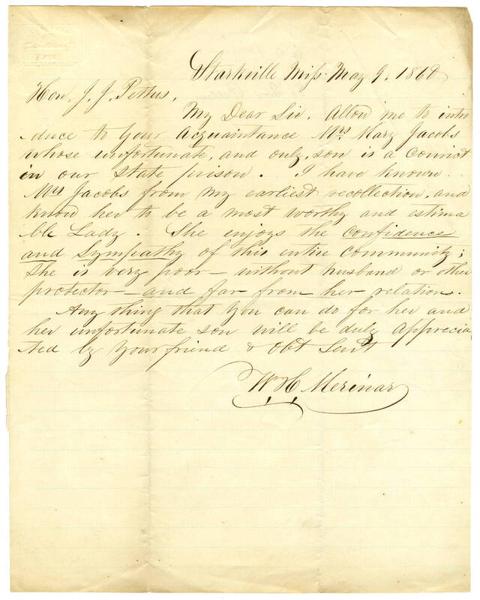 Starkville Miss. May 9. 1860
Hon. J. J. Pettus,
My Dear Sir. Allow me to intro
duce to your acquaintance Mrs Mary Jacobs
whose unfortunate, and only, son is a convict
in our State prison. I have known
Mrs Jacobs from my earliest recollection, and
know her to be a most worthy and estima
ble Lady. She enjoys the confidence
and Sympathy of this entire community;
She is very poor — without husband or other
protector — and far from her relation.
Any thing that you can do for her and
her unfortunate son will be duly apprecia
ted by your friend & obt Servt
W. H. Merinar